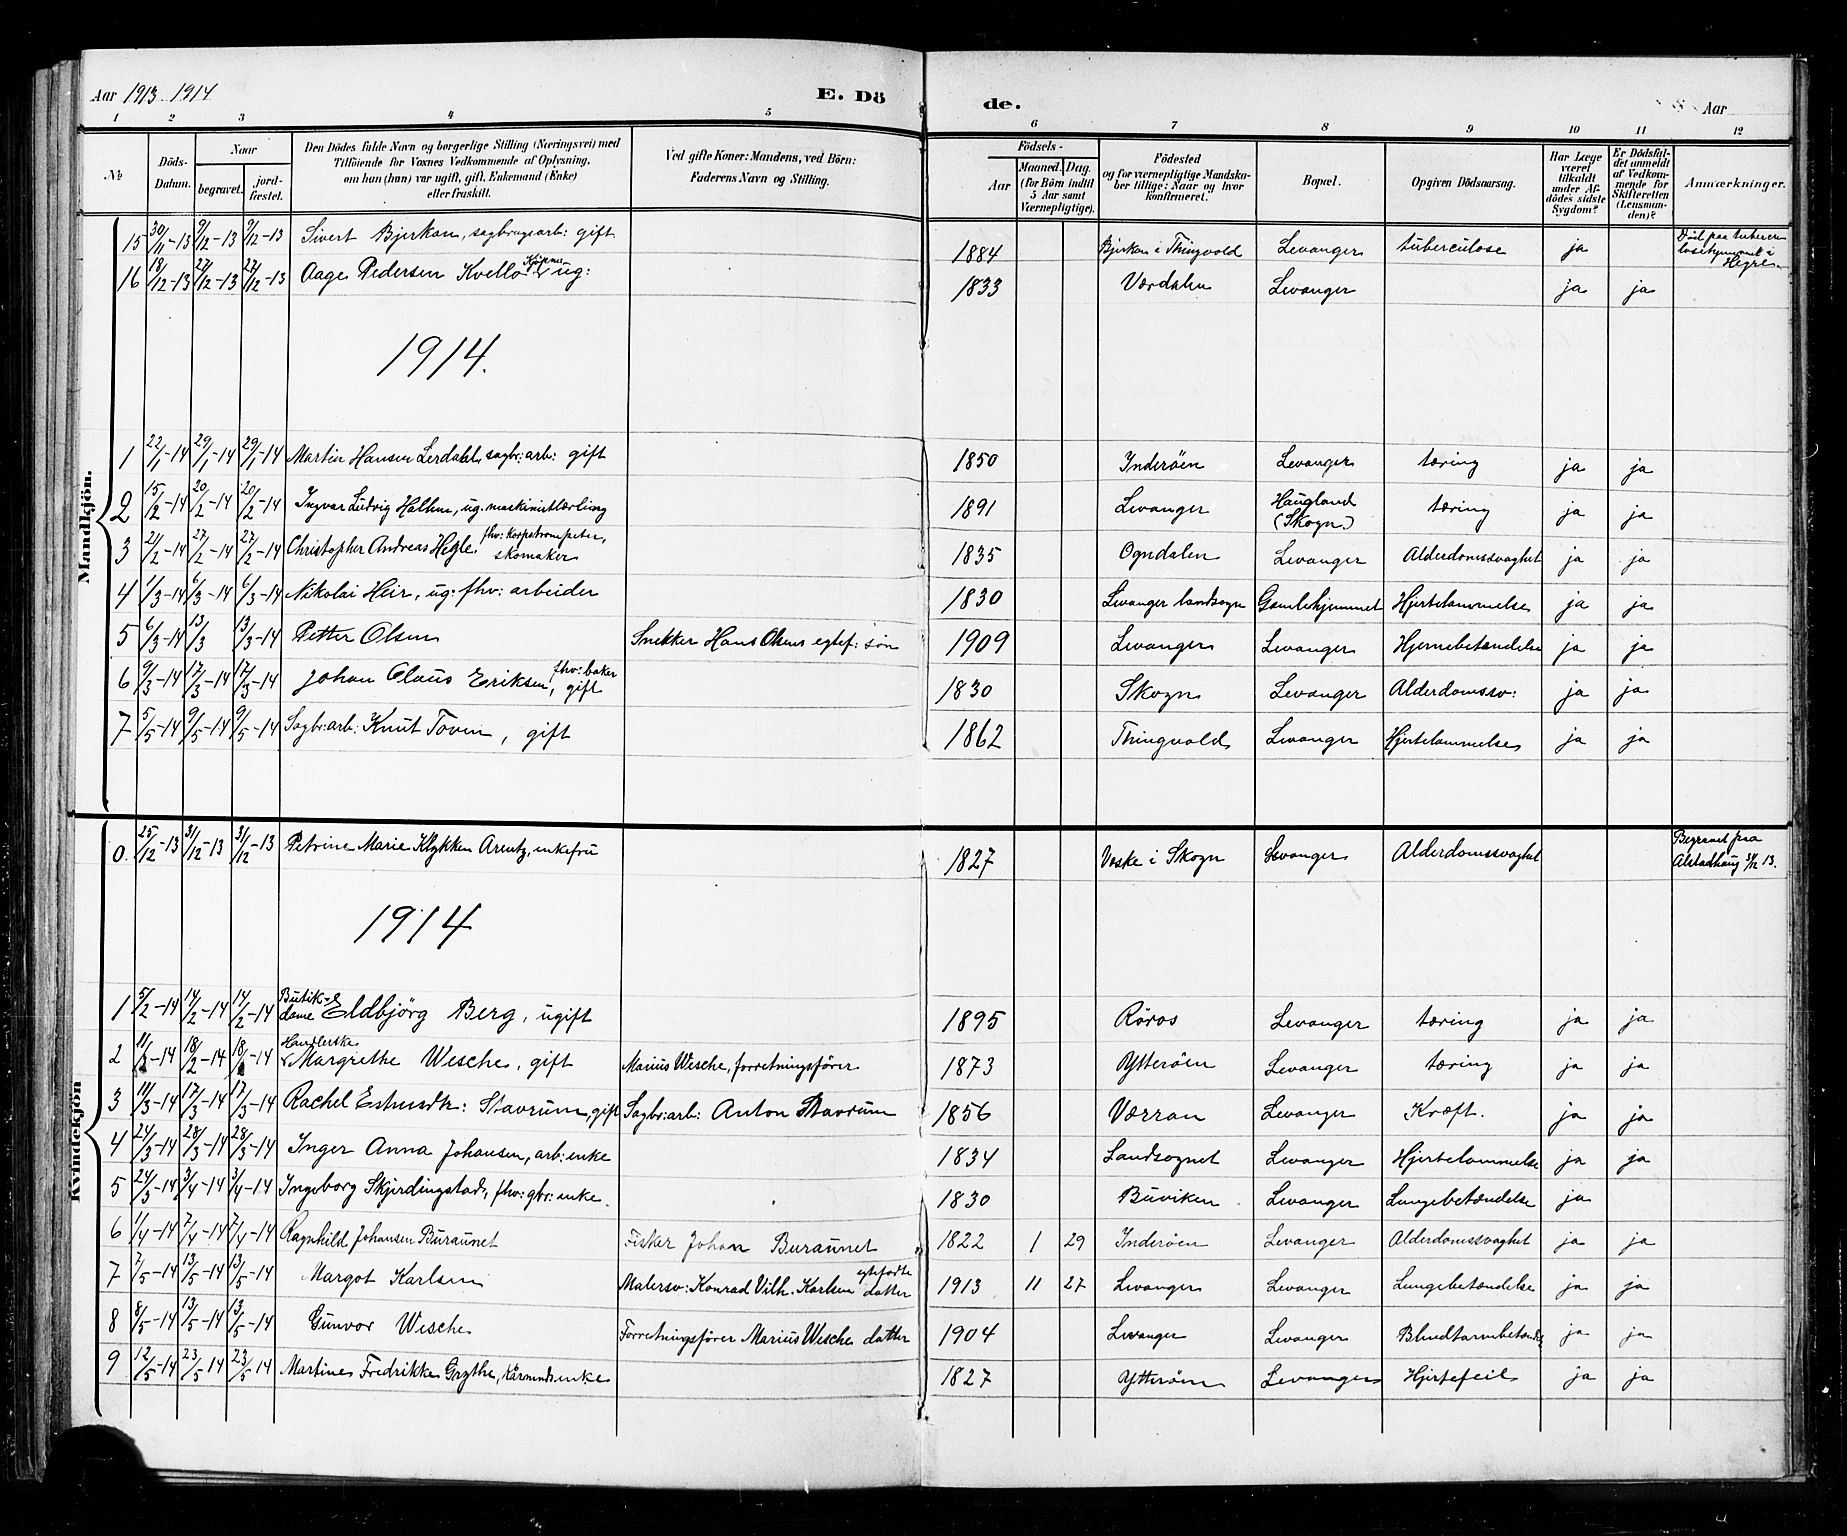 Aar 1913-1914
E. Dö
de.
Aar
1 2 3 4 5 6 7 8 9 10 11 12
№
Döds-Datum.
Naar
begravet. jordfæstet.
Den Dödes fulde Navn og borgerlige Stilling (Næringsvei) med
Tilföiende for Voxnes Vedkommende af Oplysning,
om han (hun) var ugift, gift, Enkemand (Enke)
eller fraskilt.
Ved gifte Koner: Mandens, ved Börn:
Faderens Navn og Stilling.
Födsels-
Aar Maaned. Dag.
(for Börn indtil
5 Aar samt
Værnepligtige).
Födested
og for værnepligtige Mandska-
ber tillige: Naar og hvor
konfirmeret.
Bopæl.
Opgiven Dödsaarsag.
Har Læge
været
tilkaldt
under Af-
dödes sidste
Sygdom?
Er Dödsfal-
det anmeldt
af Vedkom-
mende for
Skifteretten
(Lensman-
den)?
Anmærkninger.
Mandkjön.
15 30/11-13 9/12-13 9/12-13 Sivert Bjerkan, sagbrugsarb: gift 1884 Bjerkan i Thingvold Levanger tuberculose ja Död paa tubercu-
losehjemmet i
Hegre.
16 19/12-13 27/12-13 27/12-13 Aage Pedersen Kvello ug: 1833 Værdalen Levanger ja ja
1914.
1 22/1-14 29/1-14 29/1-14 Martin Hansen Lerdahl, sagbr: arb: gift 1850 Inderöen Levanger tæring ja ja
2 15/2-14 20/2-14 20/2-14 Ingvar Ludvig Hallem, ug. maskinistlærling 1891 Levanger Haugland
(Skogn) tæring ja ja
3 21/2-14 27/2-14 27/2-14 Christopher Andreas Hegle, fhv: korpstrompeter,
skomaker 1835 Ogndalen Levanger Alderdomssvaghet ja ja
4 1/3-14 6/3-14 6/3-14 Nikolai Heir, ug: fhv: arbeider 1830 Levanger landsogn Gamlehjemmet Hjertelammelse ja ja
5 6/3-14 13/3 13/3-14 Petter Olsen Snekker Hans Olsens egtef: sön 1909 Levanger Levanger Hjernebetændelse ja ja
6 9/3-14 17/3-14 17/3-14 Johan Claus Eriksen, fhv: baker
gift 1830 Skogn Levanger Alderdomssv: ja ja
7 5/5-14 9/5-14 9/5-14 Sagbr: arb: Knut Toven, gift 1862 Thingvold Levanger Hjertelammelse ja ja
Kvindekjön
0. 25/12-13 31/12-13 31/12-13 Petrine Marie Klykken Arentz, enkefru 1827 Veske i Skogn Levanger Alderdomssvaghet Begravet paa
Alstadhaug 31/12 13.
1914
1 5/2-14 14/2-14 14/2-14 Butik-
dame Eldbjörg Berg, ugift 1895 Röros Levanger tæring ja ja
2 11/2-14 18/2-14 18/2-14 Handlerske
Margrethe Wesche, gift Marius Wesche, forretningsförer 1873 Ytteröen Levanger tæring ja ja
3 11/3-14 17/3-14 17/3-14 Rachel Estensdtr: Stavrum, gift Sagbr: arb: Anton Stavrum 1856 Værran Levanger Kræft. ja ja
4 24/3-14 28/3-14 28/3-14 Inger Anna Johansen, arb: enke 1834 Landsognet Levanger Hjertelammelse ja ja
5 24/3-14 3/4-14 3/4-14 Ingeborg Skjerdingstad, fhv: gbr: enke. 1830 Buviken Levanger Lungebetændelse ja
6 1/4-14 7/4-14 7/4-14 Ragnhild Johansen Buraunet Fisker Johan Buraunet 1822 1 29 Inderöen Levanger Alderdomssvaghet ja ja
7 7/5-14 13/5-14 13/5-14 Margot Karlsen Malersv: Konrad Vilh. Karlsen egtefödte
datter 1913 11 27 Levanger Levanger Lungebetændelse ja ja
8 8/5-14 13/5-14 13/5-14 Gunvor Wesche Forretningsförer Marius Wesche datter 1904 Levanger Levanger Blindtarmbetænd. ja ja
9 12/5-14 23/5-14 23/5 14 Martine Fredrikke Grythe, kårmandsenke 1827 Ytteröen Levanger Hjertefeil ja ja